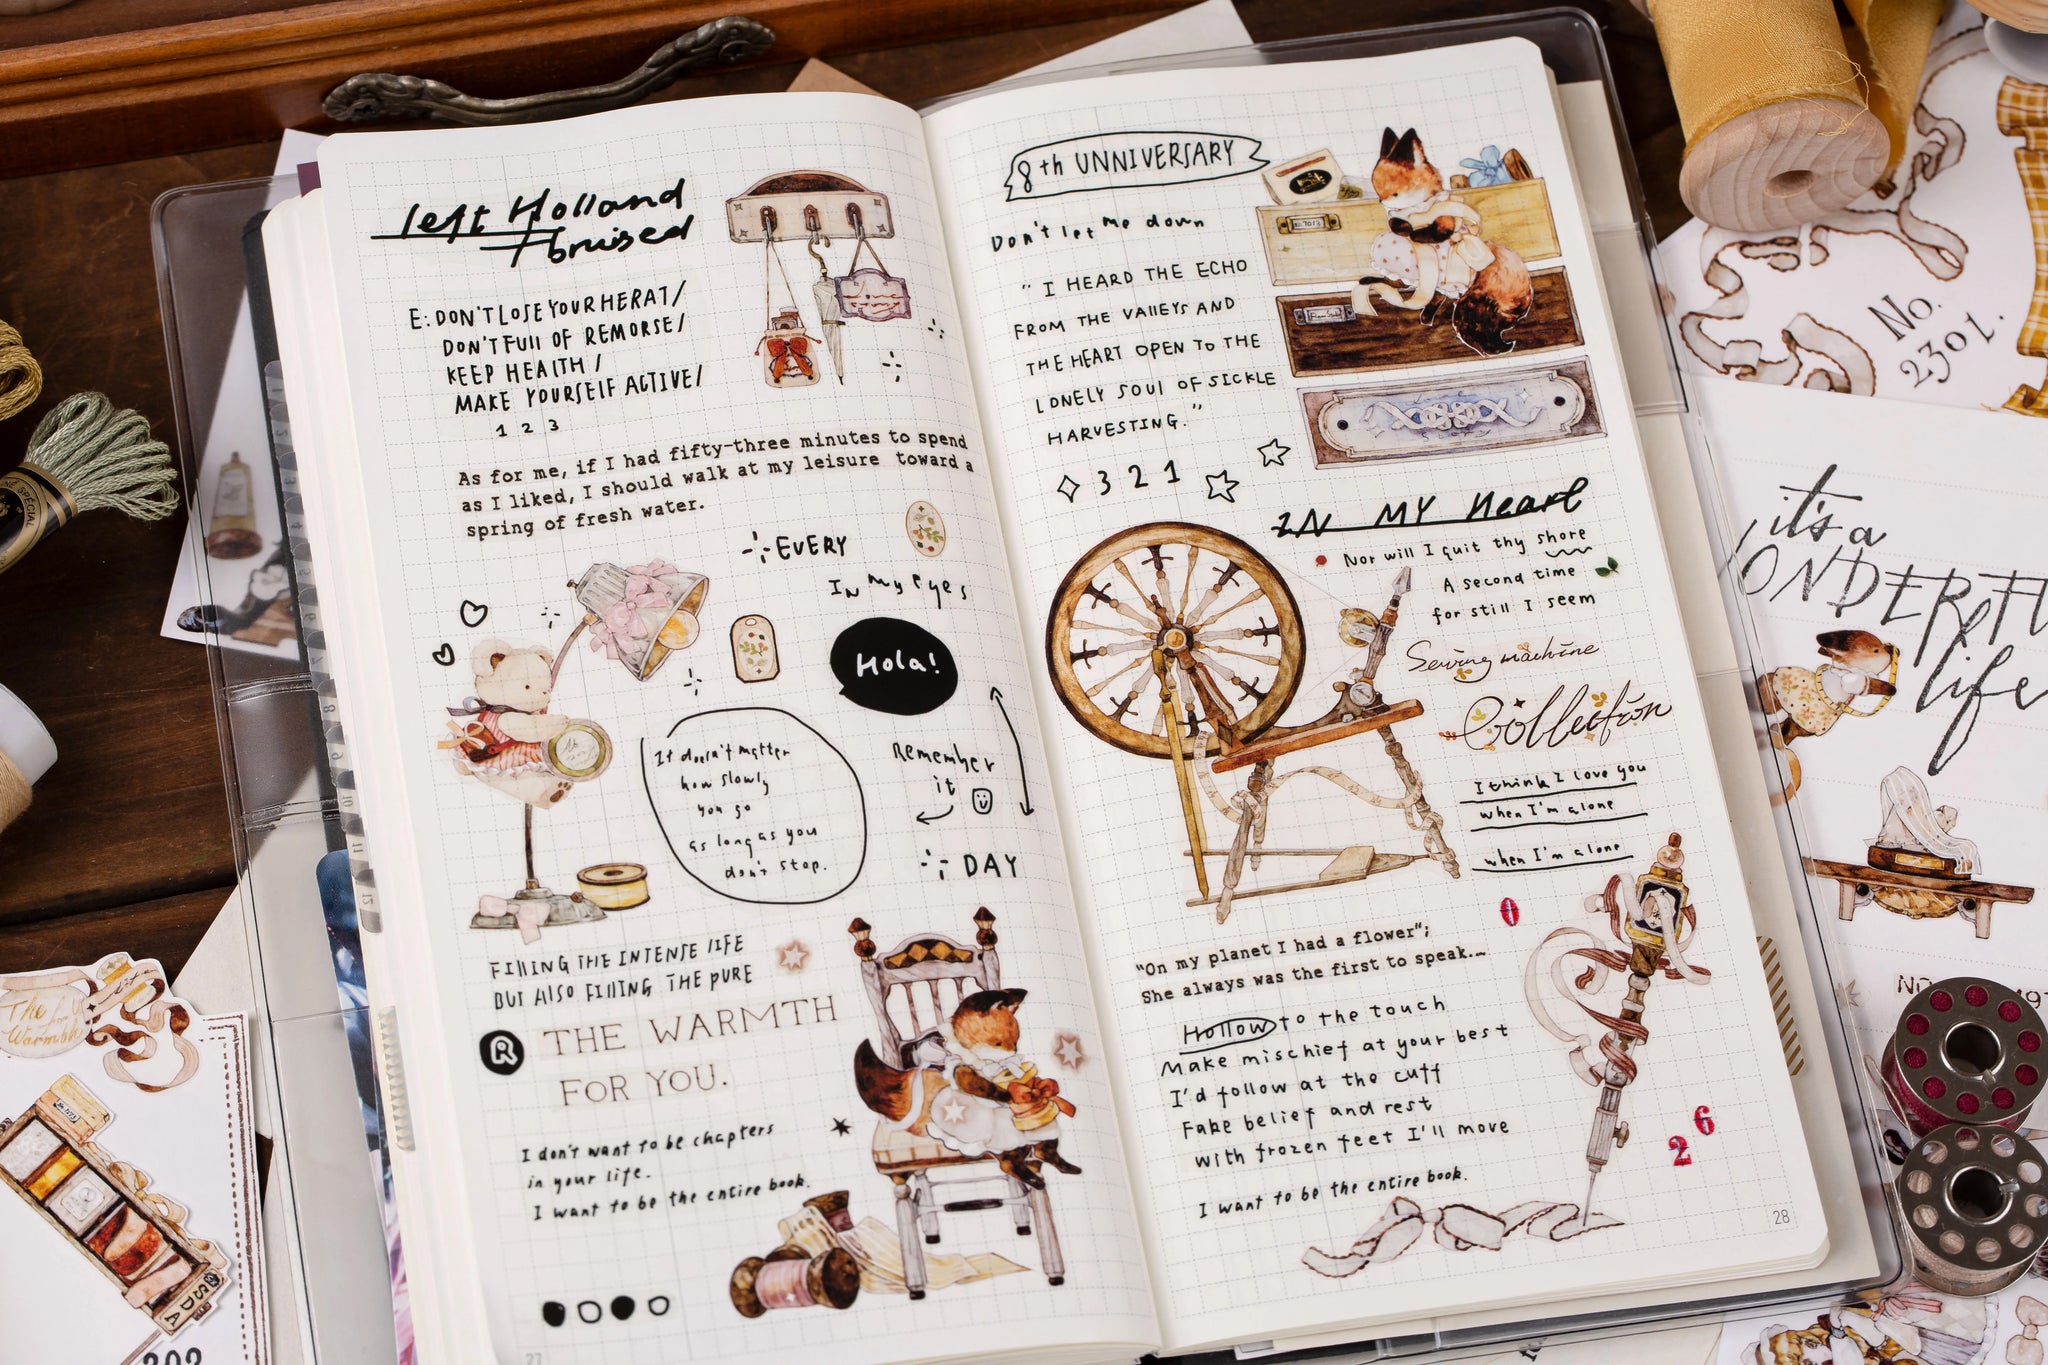 left Holland
bruised
E: DON'T LOSE YOUR HERAT/
DON'T FUll OF REMORSE/
KEEP HEALTH/
MAKE YOURSELF ACTIVE/
1 2 3
As for me, if I had fifty-three minutes to spend
as I liked, I should walk at my leisure toward a
spring of fresh water.
EVERY
IN my eyes
Hola!
It doesn't matter
how slowly
you go
as long as you
don't stop.
Remember
it
DAY
FIllING THE INTENSE lIFE
BUT AlSO FIllING THE PURE
R
THE WARMTH
FOR YOU.
I don't want to be chapters
in your life.
I want to be the entire book.
27
8th UNNIVERSARY
Don't let me down
" I HEARD THE ECHO
FROM THE VAllEYS AND
THE HEART OPEN TO THE
LONELY SOUl OF SICKLE
HARVESTING."
3 2 1
No.7013
IN MY Heart
Nor will I quit thy shore
A second time
for still I seem
Sewing machine
Collection
I think I love you
when I'm alone
when I'm alone
0
"On my planet I had a flower";
She always was the first to speak...
Hollow to the touch
Make mischief at your best
I'd follow at the cuff
Fake belief and rest
with frozen feet I'll move
I want to be the entire book.
2 6
28
No.
2301.
it's a
life
The
Warmth
SSDA
SPÉCIAL